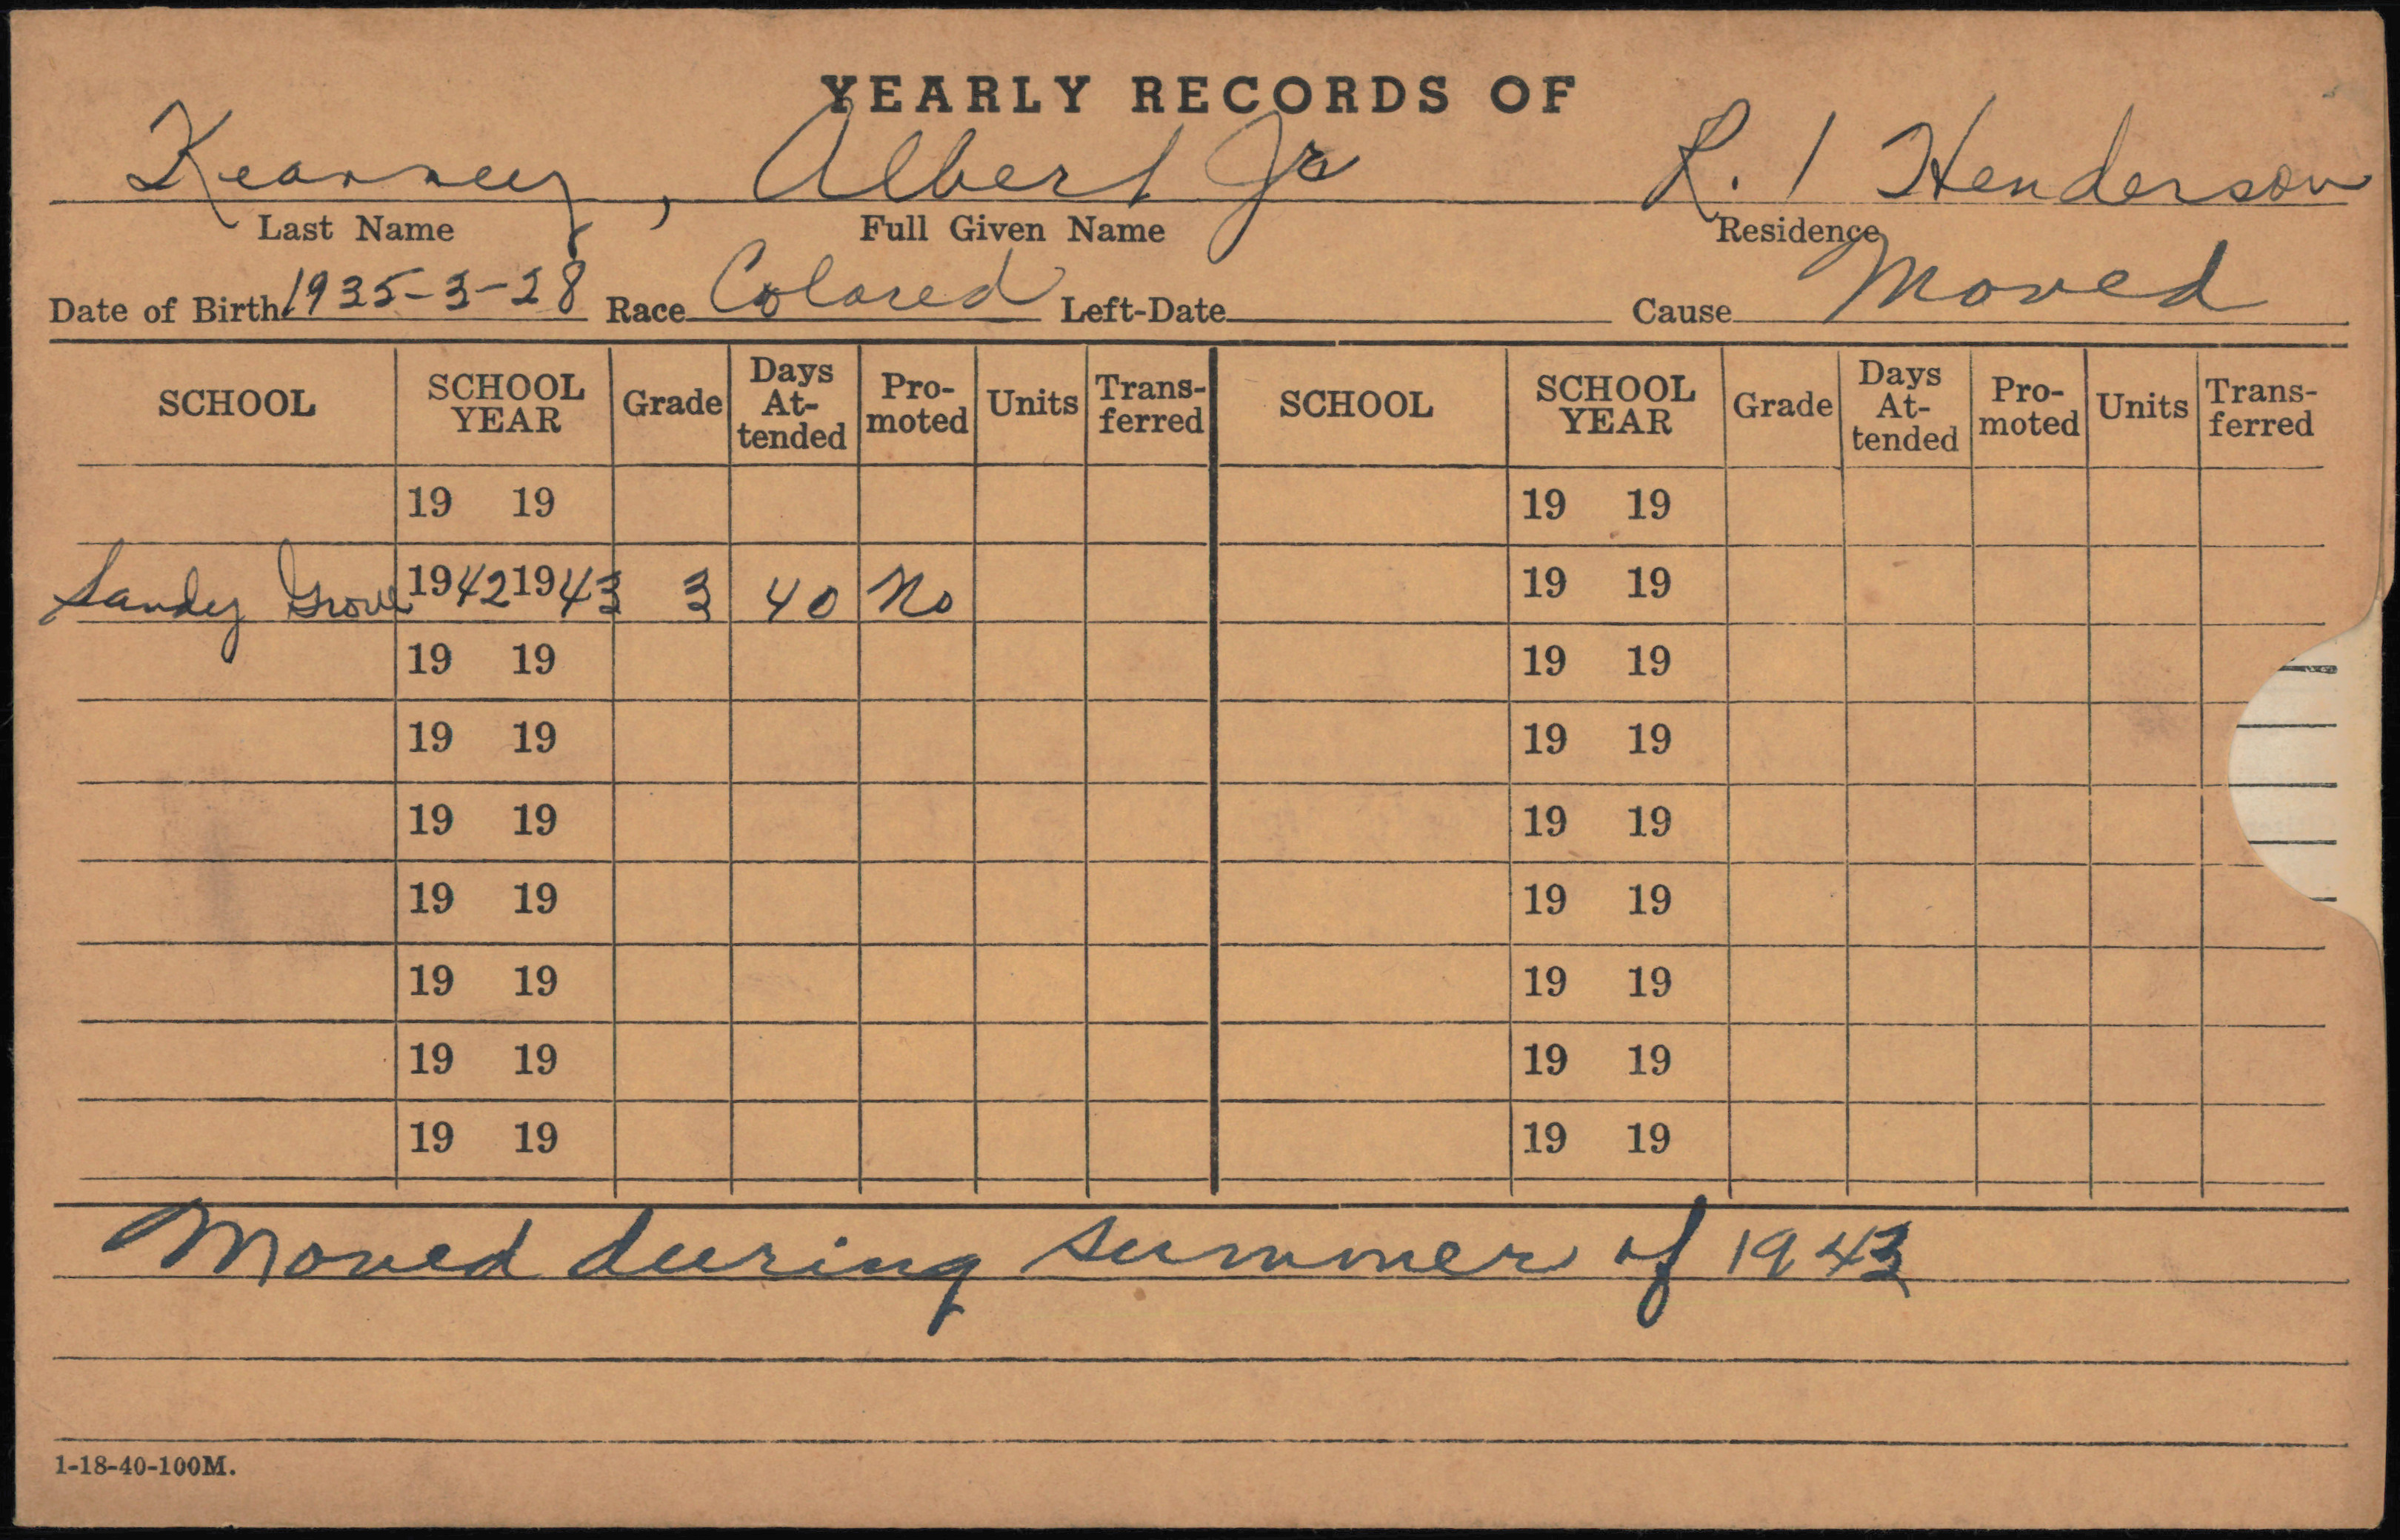 YEARLY RECORDS OF
Kearney, Albert Jr R. 1 Henderson
Last Name Full Given Name Residence
Date of Birth 1935-3-28 Race Colored Left-Date Cause Moved
SCHOOL SCHOOL YEAR Grade Days At-tended Pro-moted Units Trans-ferred SCHOOL SCHOOL YEAR Grade Days At-tended Pro-moted Units Trans-ferred
19 19 19 19
Sandy Grove 1942 1943 3 40 No 19 19
19 19 19 19
19 19 19 19
19 19 19 19
19 19 19 19
19 19 19 19
19 19 19 19
19 19 19 19
Moved during summer of 1943
1-18-40-100M.